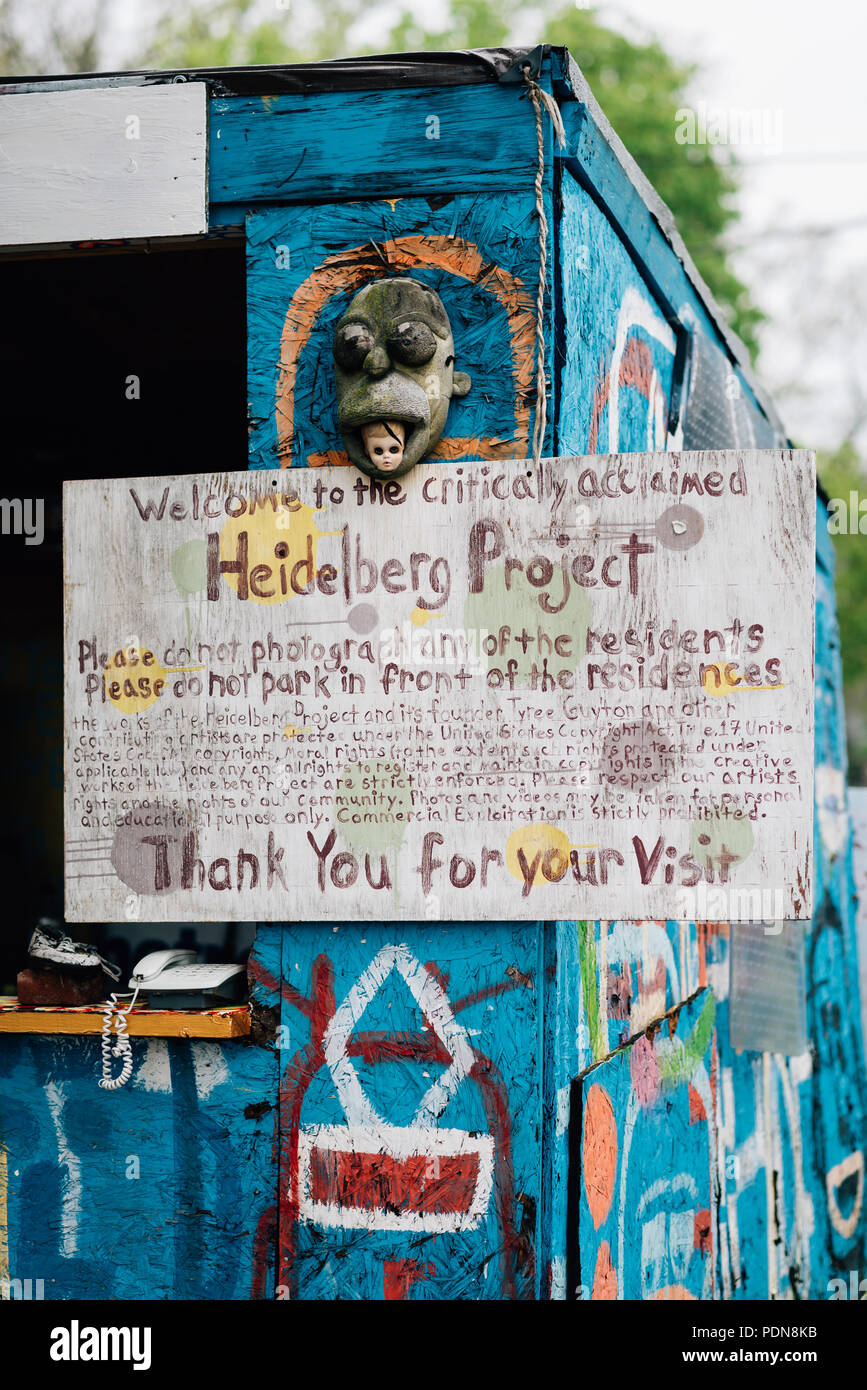 Welcome to the critically acclaimed
Heidelberg Project
Please do not photograph any of the residents
Please do not park in front of the residences
the works of the Heidelberg Project and its founder Tyree Guyton and other
contributing artists are protected under the United States Copyright Act, Title 17 United
States Code. All copyrights, Moral rights (to the extent such rights protected under
applicable law) and any and all rights to register and maintain copyrights in the creative
works of the Heidelberg Project are strictly enforced. Please respect our artists
rights and the rights of our Community. Photos and videos may be taken for personal
and educational purpose only. Commercial Exploitation is strictly prohibited.
Thank You for your Visit
alamy
alamy
Image ID: PDN8KB
www.alamy.com